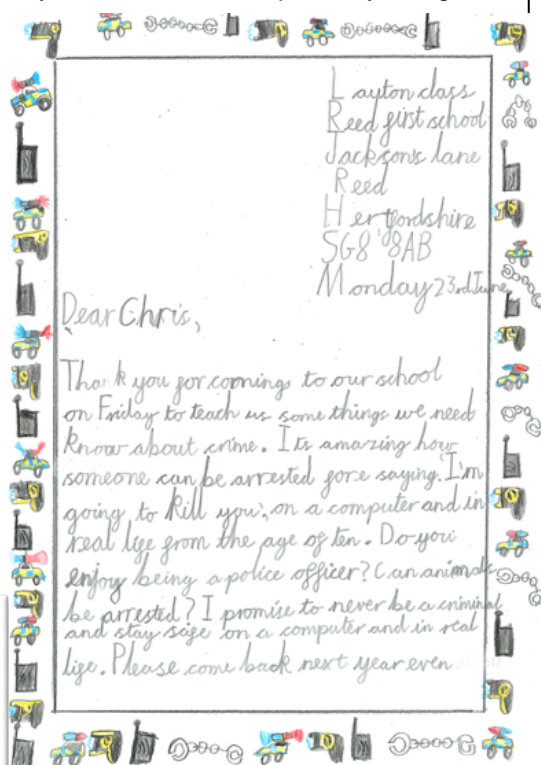 Layton class
Reed first school
Jackson's lane
Reed
Hertfordshire
SG8 8AB
Monday 23rd June
Dear Chris,
Thank you for comings to our school
on Friday to teach us some things we need
know about crime. Its amazing how
someone can be arrested fore saying, 'I'm
going to kill you', on a computer and in
real life from the age of ten. Do you
enjoy being a police officer? Can animals
be arrested? I promise to never be a criminal
and stay safe on a computer and in real
life. Please come back next year even